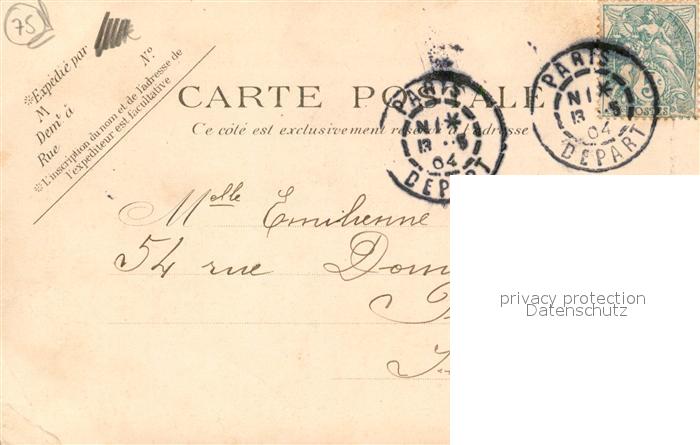 75
*Expédié par
M
N°
Dem.t à
Rue
*L'inscription du nom et de l'adresse de
l'expéditeur est facultative
CARTE POSTALE
Ce côté est exclusivement réservé à l'adresse
PARIS
N I *
13 5
04
DEPART
PARIS
N I *
13 5
04
DEPART
POSTES
Melle Emilienne
54 rue
privacy protection
Datenschutz